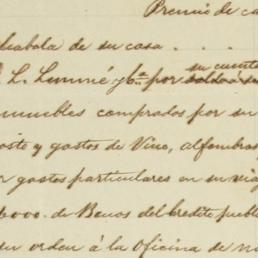 Premio de ca
de su casa . . .
L. Lemmé y Ca por su cuenta
muebles comprados por su
oste y gastos de Vino, alfombras
r gastos particulares en su via
000. de Bonos del credito publ
su orden á la Oficina de